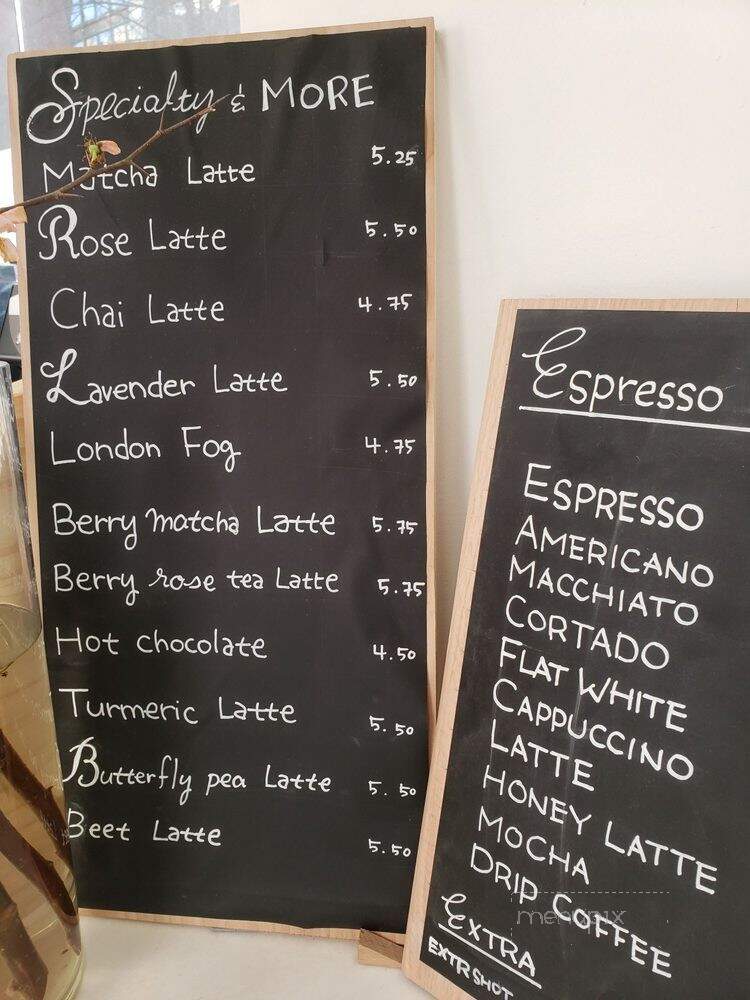 Specialty & MORE
Matcha Latte 5.25
Rose Latte 5.50
Chai Latte 4.75
Lavender Latte 5.50
London Fog 4.75
Berry matcha Latte 5.75
Berry rose tea Latte 5.75
Hot chocolate 4.50
Turmeric Latte 5.50
Butterfly pea Latte 5.50
Beet Latte 5.50
Espresso
ESPRESSO
AMERICANO
MACCHIATO
CORTADO
FLAT WHITE
CAPPUCCINO
LATTE
HONEY LATTE
MOCHA
DRIP COFFEE
EXTRA
EXTR SHOT
menupix